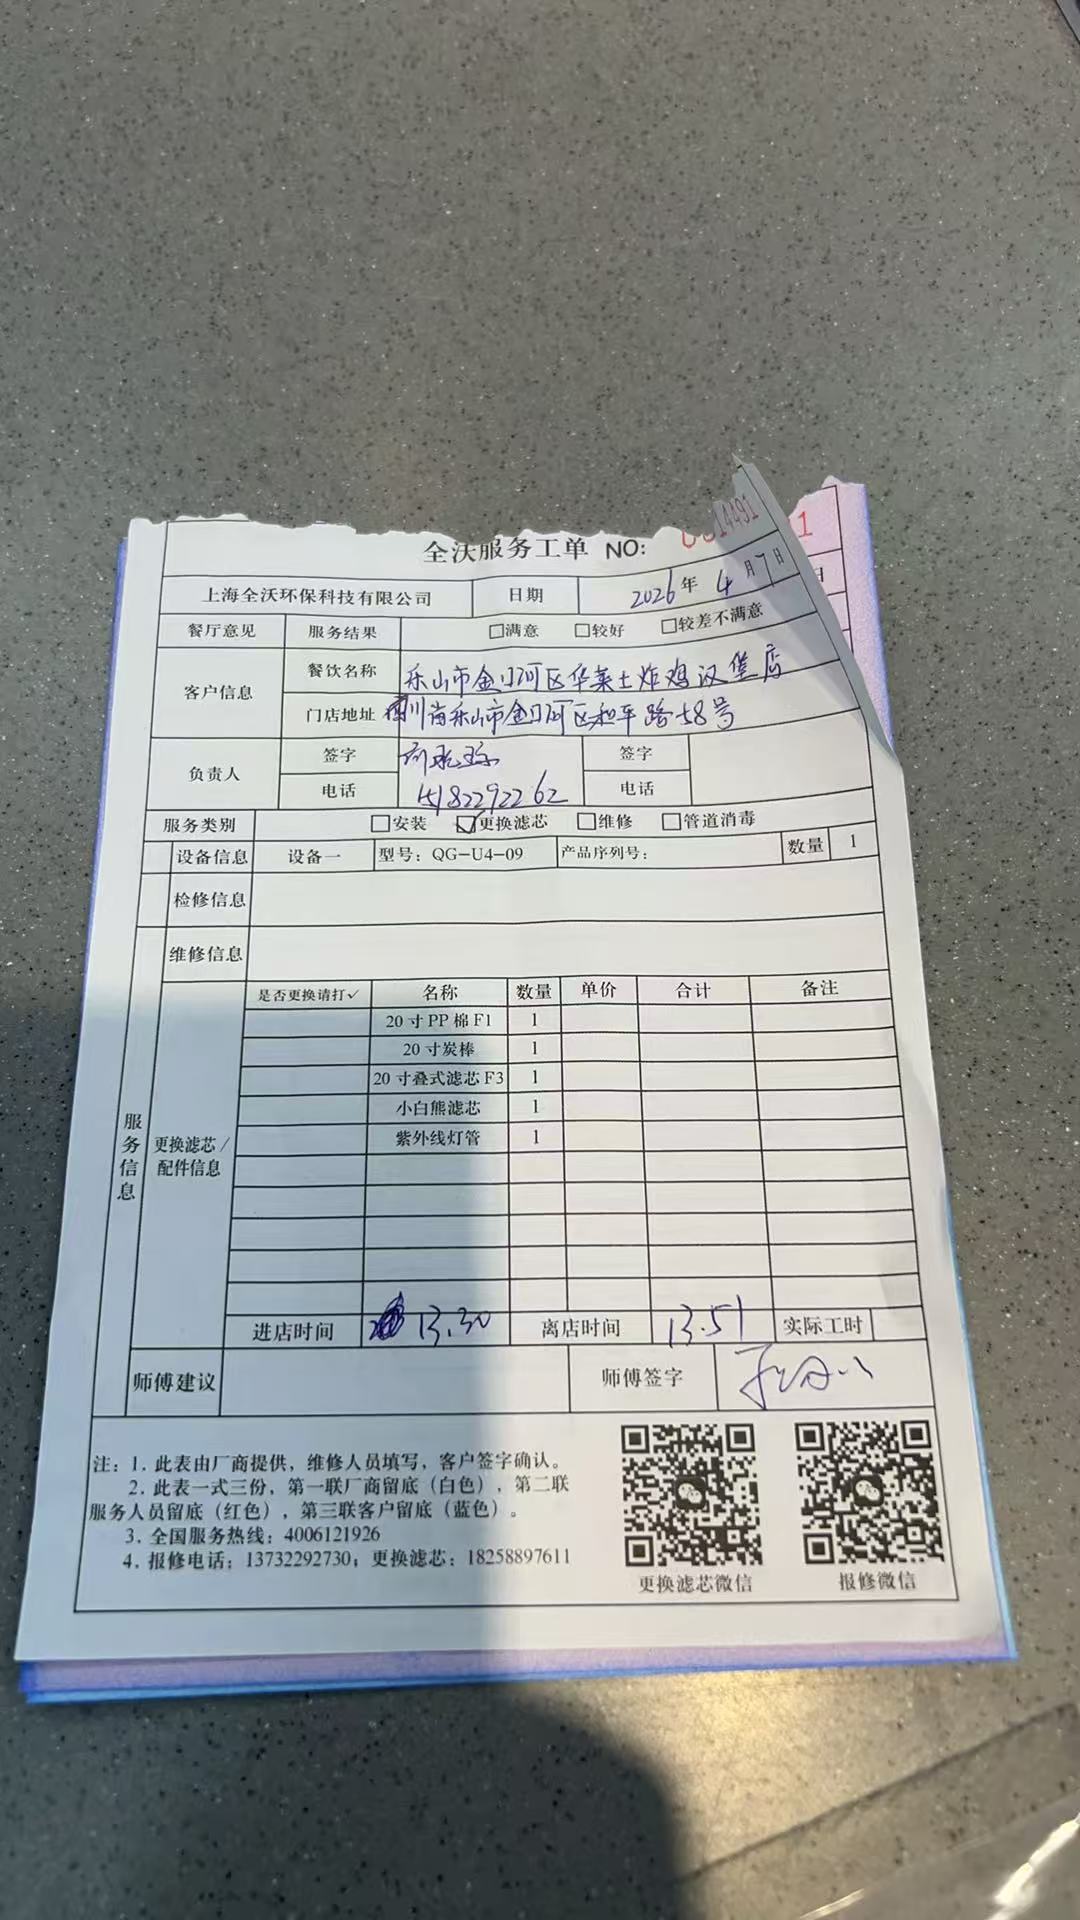 全沃服务工单 NO: 0014491
上海全沃环保科技有限公司 日期 2026年 4月7日
餐厅意见 服务结果 □满意 □较好 □较差不满意
客户信息 餐饮名称 乐山市金口河区华莱士炸鸡汉堡店
门店地址 四川省乐山市金口河区和平路58号
负责人 签字 签字
电话 电话
服务类别 □安装 ☑更换滤芯 □维修 □管道消毒
设备信息 设备一 型号：QG-U4-09 产品序列号： 数量 1
检修信息
维修信息
服务信息
更换滤芯/配件信息
是否更换请打✓ 名称 数量 单价 合计 备注
20寸PP棉F1 1
20寸炭棒 1
20寸叠式滤芯F3 1
小白熊滤芯 1
紫外线灯管 1
进店时间 13.30 离店时间 13.51 实际工时
师傅建议 师傅签字
注：1. 此表由厂商提供，维修人员填写，客户签字确认。
2. 此表一式三份，第一联厂商留底（白色），第二联
服务人员留底（红色），第三联客户留底（蓝色）。
3. 全国服务热线：4006121926
4. 报修电话；13732292730；更换滤芯：18258897611
更换滤芯微信 报修微信